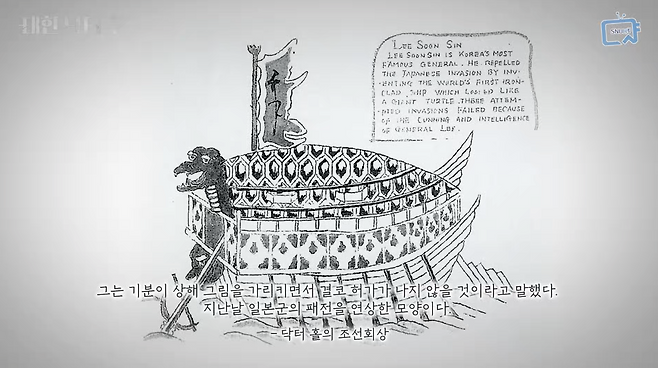 LEE SOON SIN
LEE SOON SIN IS KOREA'S MOST
FAMOUS GENERAL. HE REPELLED
THE JAPANESE INVASION BY INV-
ENTING THE WORLD'S FIRST IRON-
CLAD SHIP WHICH LOOKED LIKE
A GIANT TURTLE. THESE ATTEM-
PTED INVASIONS FAILED BECAUSE
OF THE CUNNING AND INTELLIGENCE
OF GENERAL LEE.
그는 기분이 상해 그림을 가리키면서 결코 허가가 나지 않을 것이라고 말했다.
지난날 일본군의 패전을 연상한 모양이다.
- 닥터 홀의 조선회상